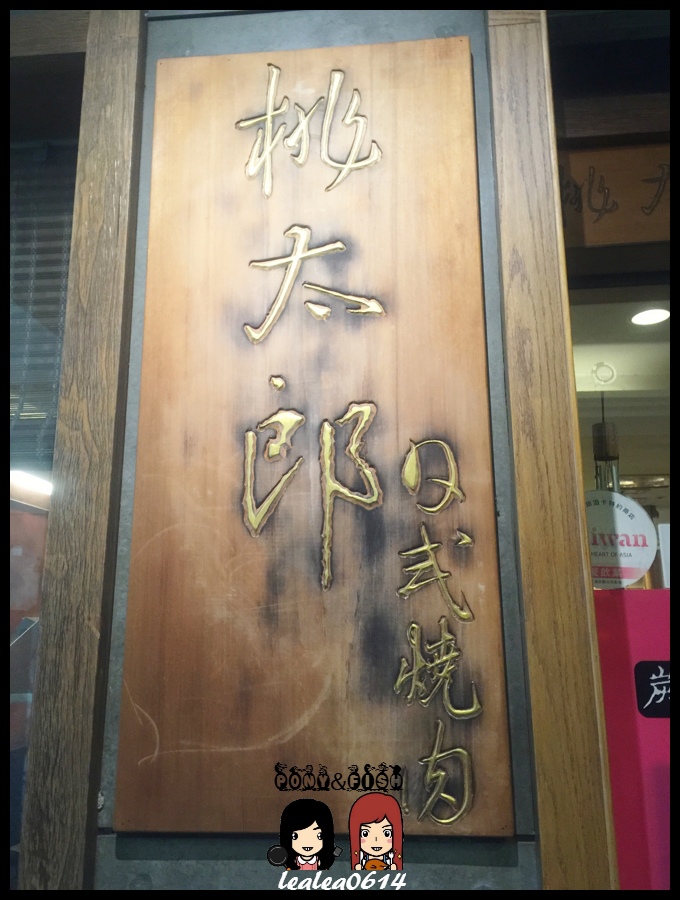 桃太郎
日式燒肉
桃太
Taiwan
HEART OF ASIA
炭
PONY&FISH
lealea0614